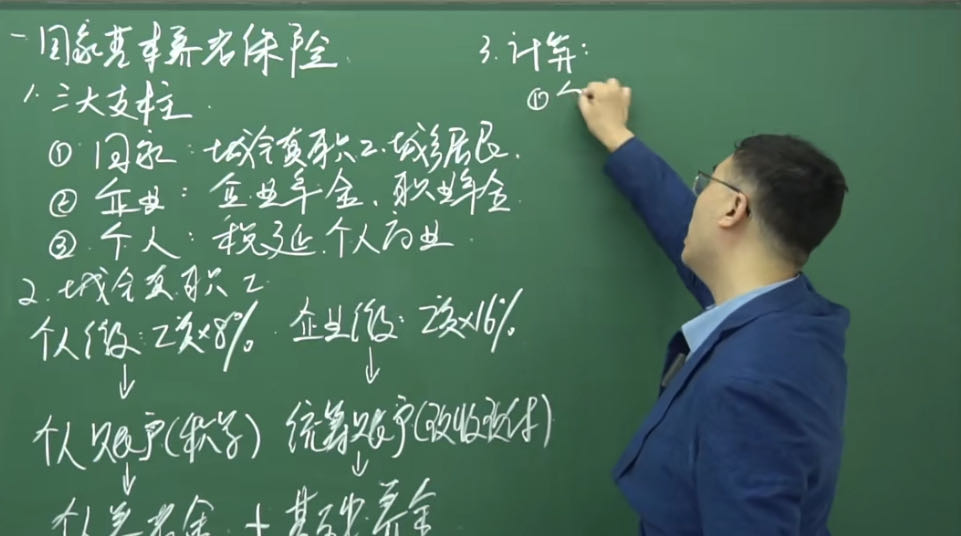 一国家基本养老保险.
1. 三大支柱.
① 国家: 城镇职工.城乡居民.
② 企业: 企业年金.职业年金.
③ 个人: 税延.个人商业.
2. 城镇职工
个人缴:工资×8%. 企业缴:工资×16%.
↓ ↓
个人账户(积累) 统筹账户(现收现付)
↓ ↓
个人养老金 + 基础养金
3. 计算:
①